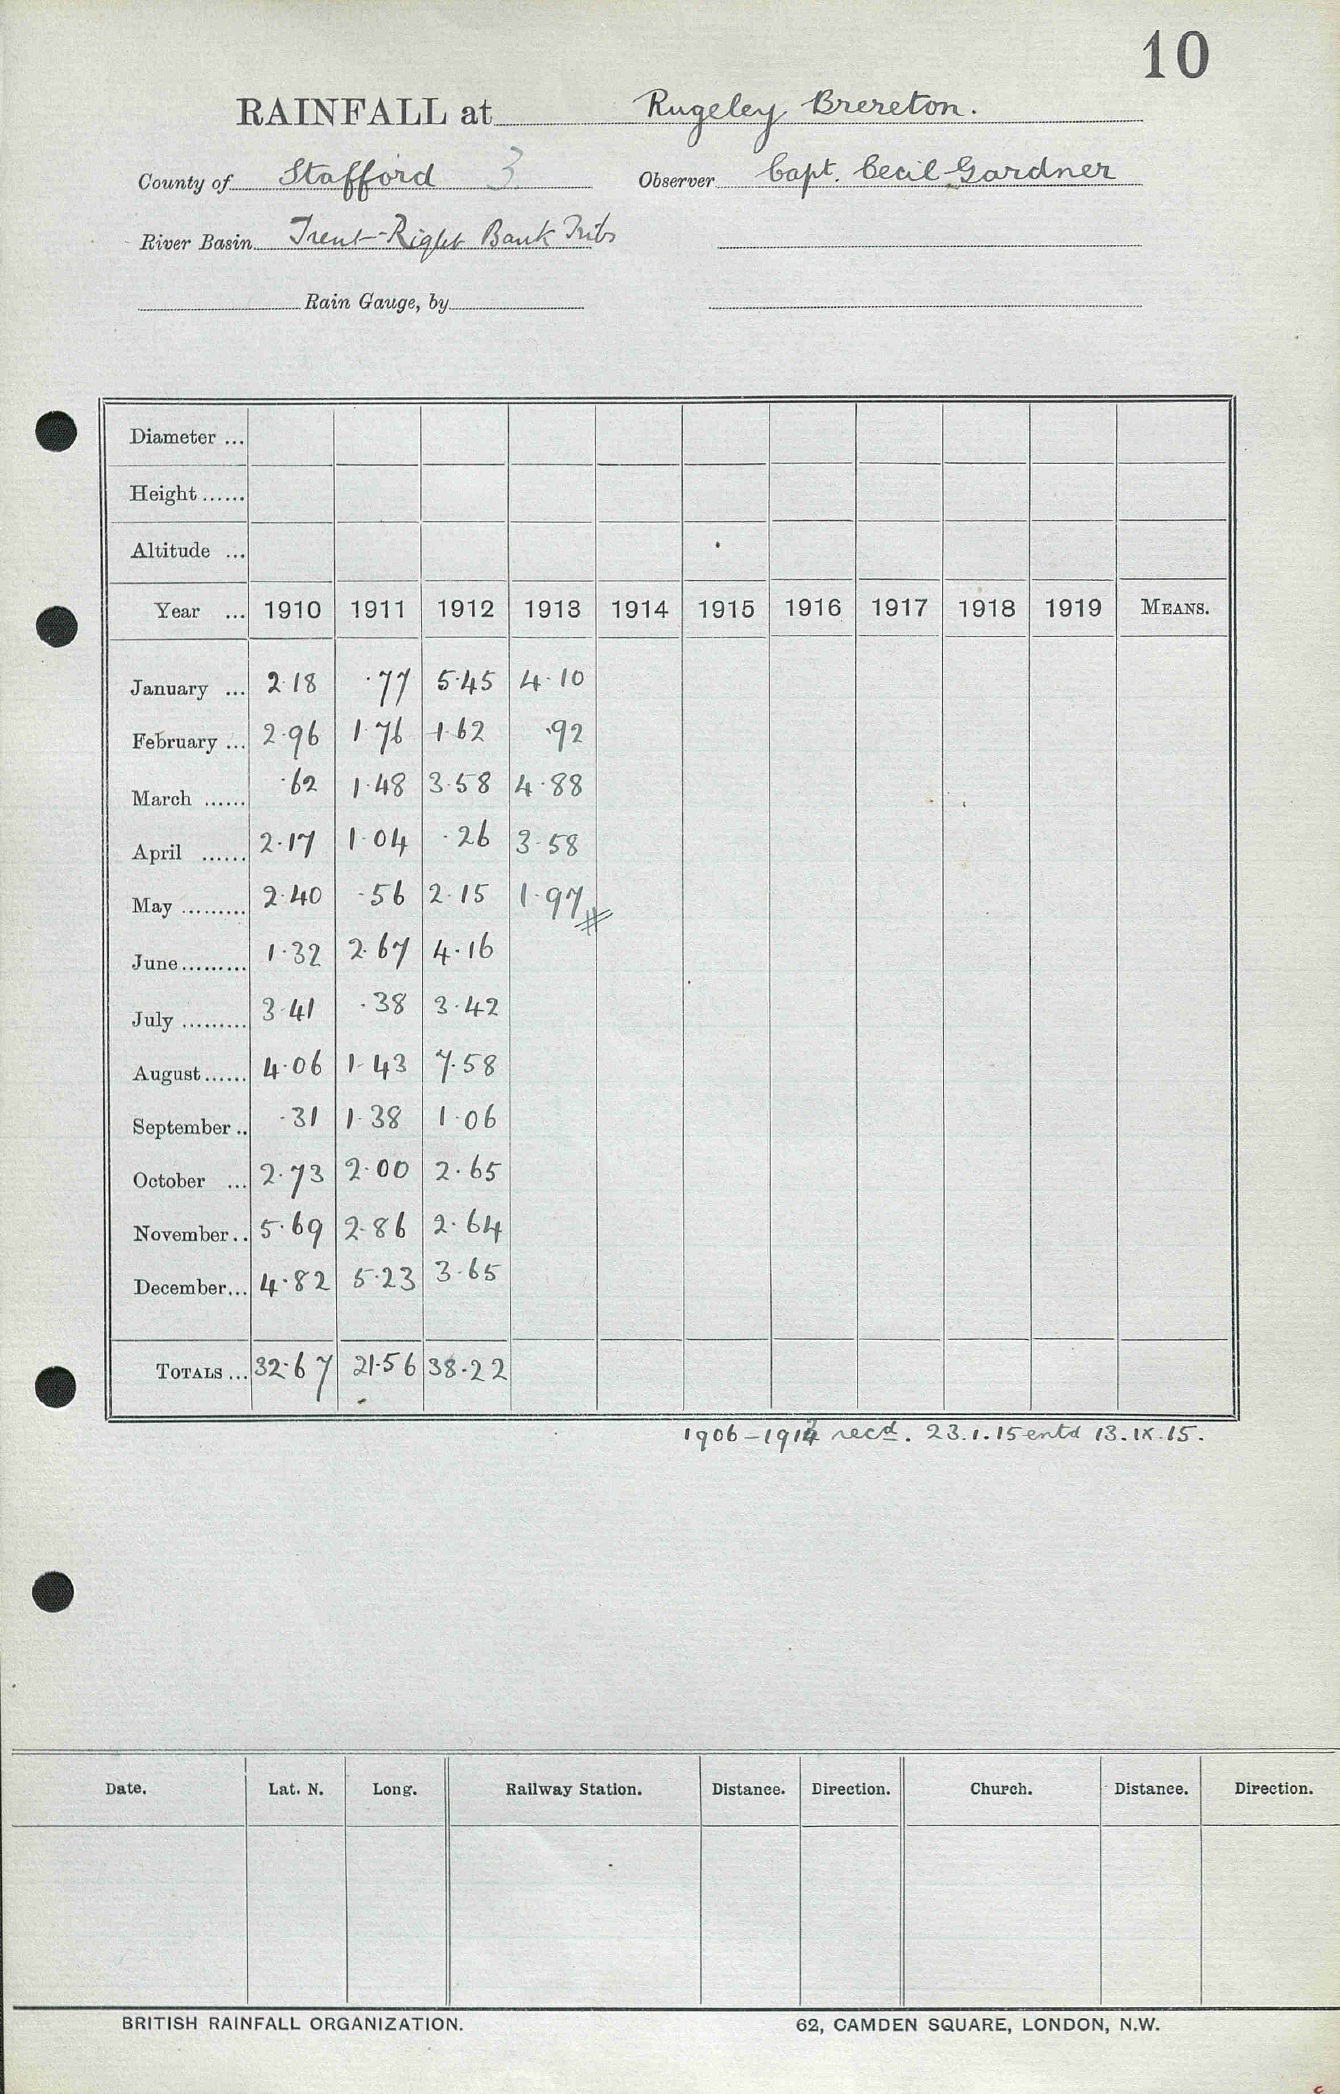 10
RAINFALL at Rugeley Brereton.
County of Stafford 3 Observer Capt. Cecil Gardner
River Basin Trent-Right Bank Tribs
Rain Gauge, by
Diameter ...
Height ......
Altitude ...
Year ... 1910 1911 1912 1913 1914 1915 1916 1917 1918 1919 MEANS.
January ... 2.18 .77 5.45 4.10
February ... 2.96 1.76 1.62 .92
March ...... .62 1.48 3.58 4.88
April ...... 2.17 1.04 .26 3.58
May ......... 2.40 .56 2.15 1.97
June ......... 1.32 2.67 4.16
July ......... 3.41 .38 3.42
August ...... 4.06 1.43 7.58
September .. .31 1.38 1.06
October ... 2.73 2.00 2.65
November .. 5.69 2.86 2.64
December ... 4.82 5.23 3.65
TOTALS ... 32.67 21.56 38.22
1906- recd. 23.1.15 entd 13.IX.15.
Date. Lat. N. Long. Railway Station. Distance. Direction. Church. Distance. Direction.
BRITISH RAINFALL ORGANIZATION. 62, CAMDEN SQUARE, LONDON, N.W.